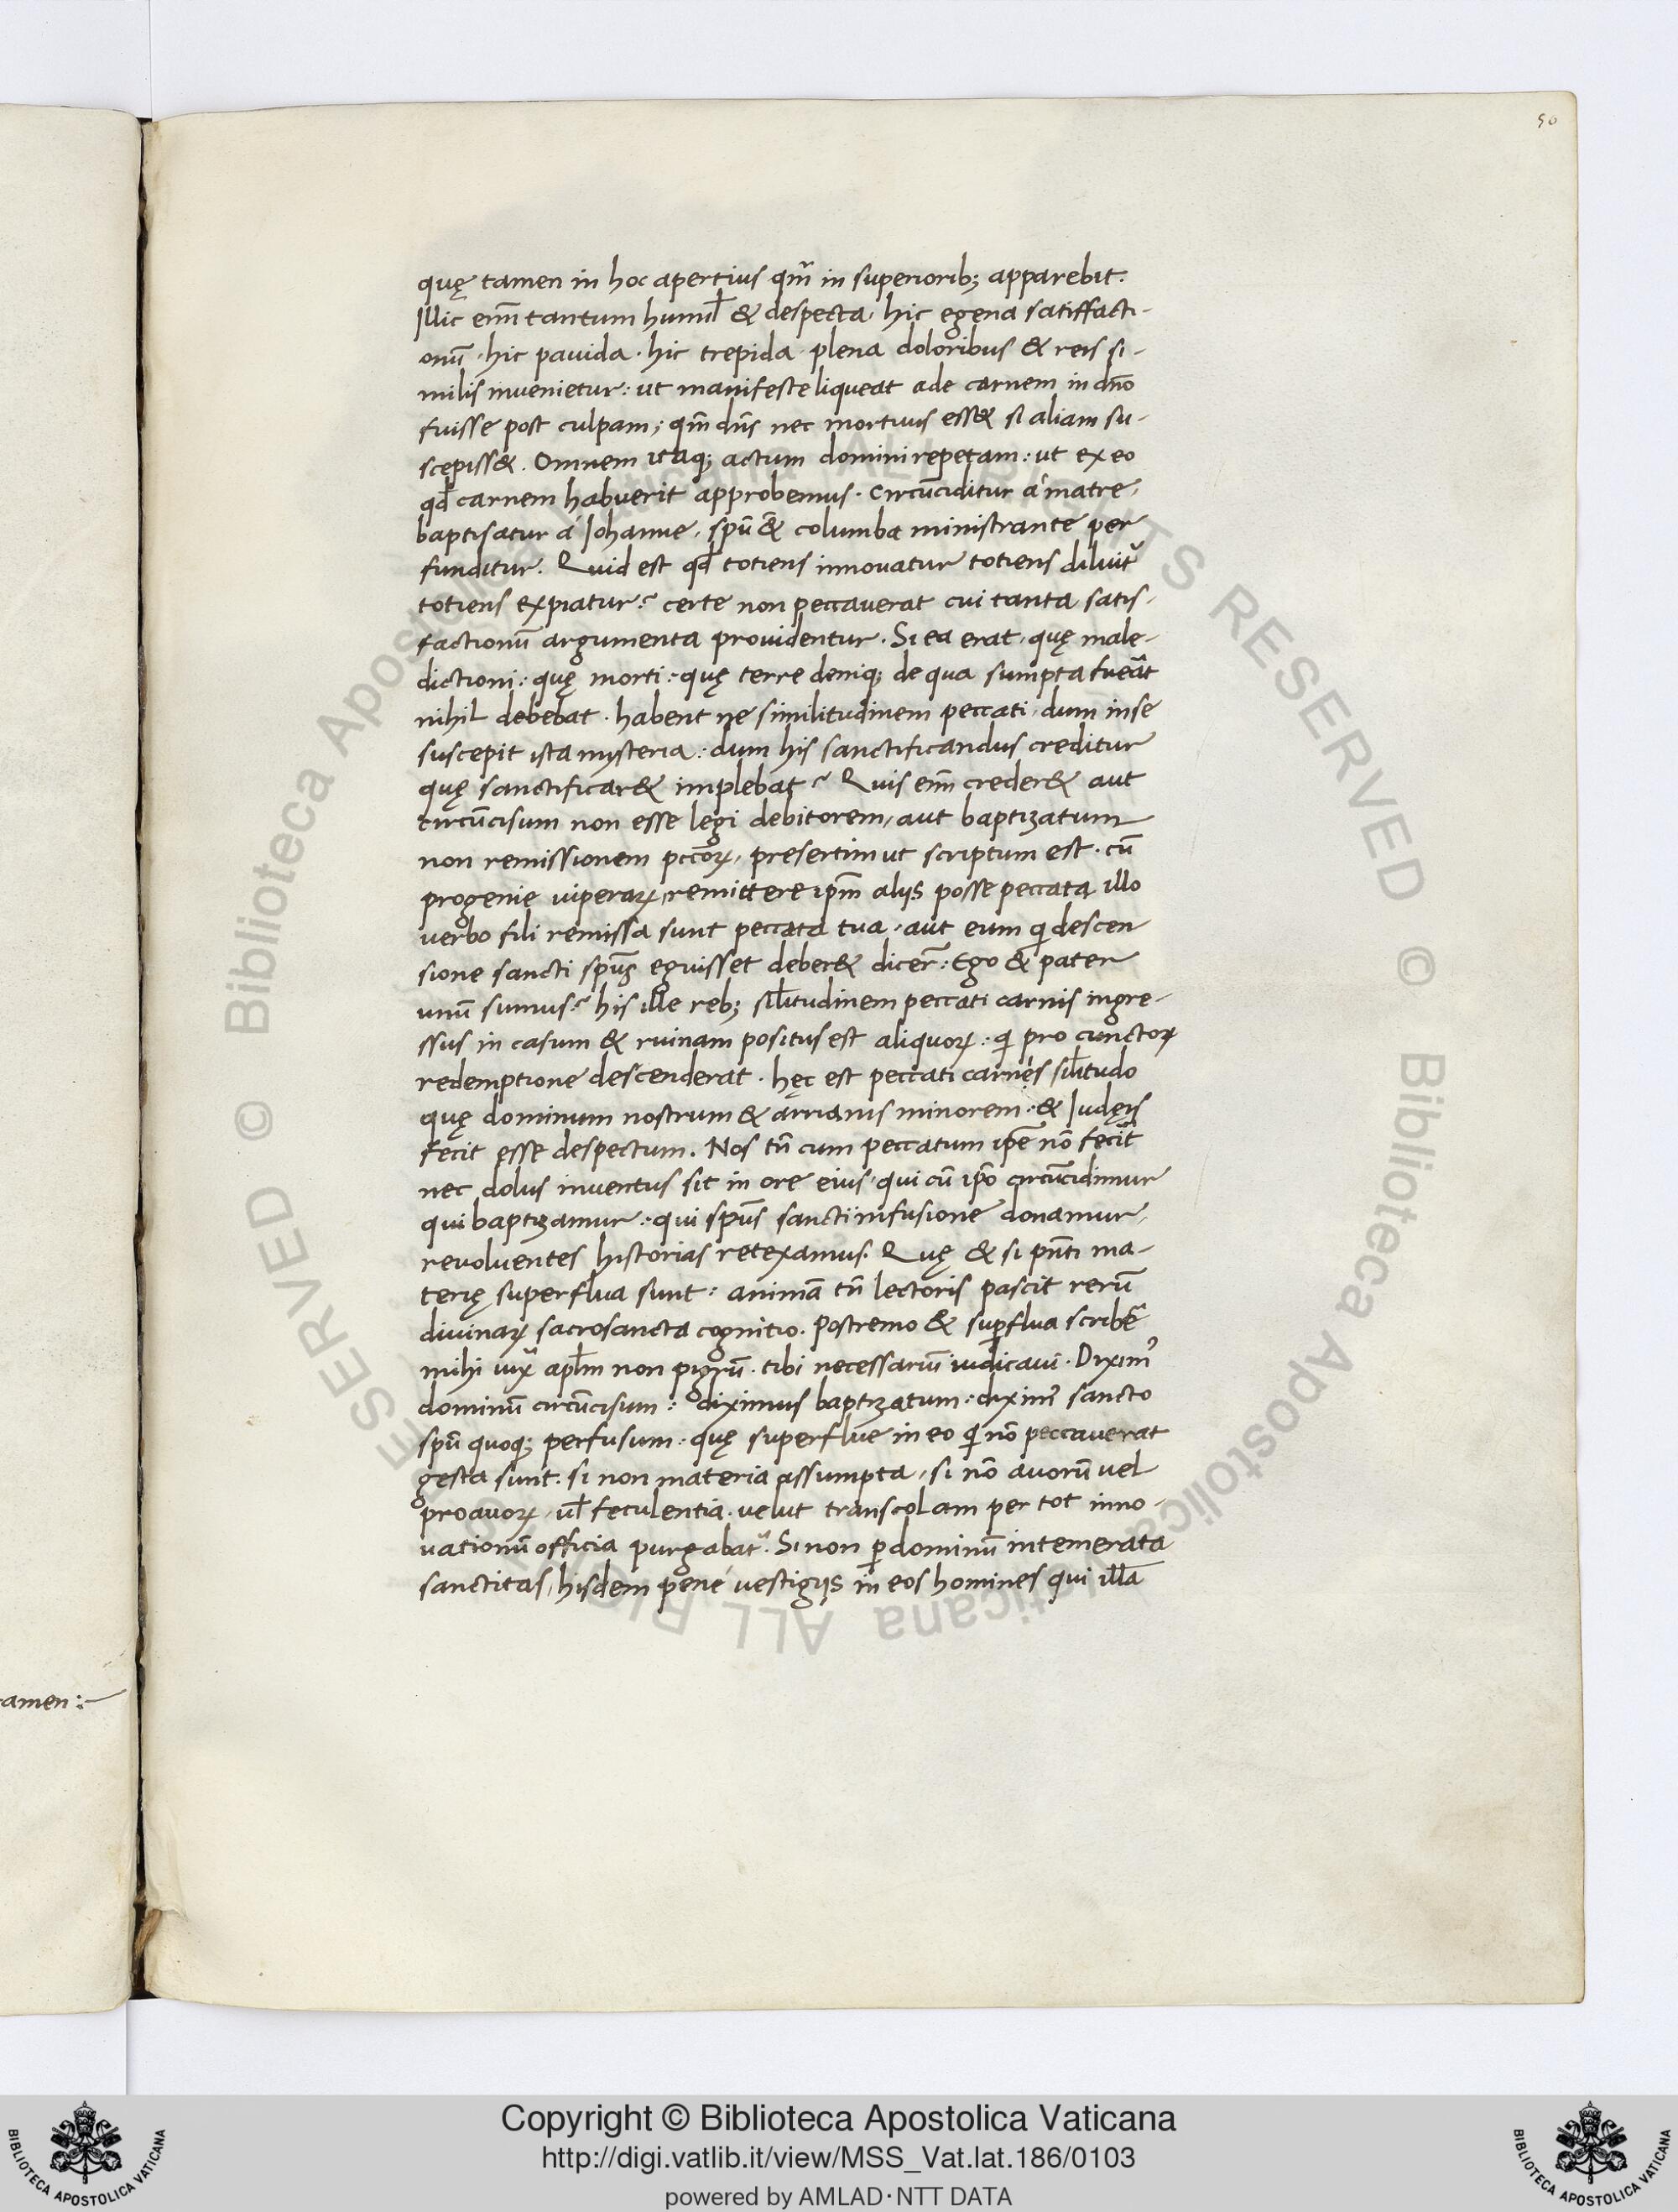 50
quę tamen in hoc apertius qm̃ in superiorib; apparebit.
Illic em̃ tantum humil̃ & despecta. hic egena satiffacti-
onũ. hic pavida. hic trepida. plena doloribus & reis si-
milis invenietur: ut manifeste liqueat ade carnem in dño
fuisse post culpam; qm̃ dñs nec mortuus ess& si aliam su-
scepiss&. Omnem itaq; actum domini repetam: ut ex eo
qđ carnem habuerit approbemus. Circũciditur á matre,
baptisatur á Iohanne, spũ & columba ministrante per
funditur. Quid est qđ totiens innovatur totiens diluit᷑
totiens expiatur? certe non peccaverat cui tanta satis-
factionũ argumenta providentur. Si ea erat, quę malę-
dictioni: quę morti: quę terre deniq; de qua sumpta fuẽat
nihil debebat. habent ne similitudinem peccati, dum in se
suscepit ista mysteria: dum his sanctificandus creditur
quę sanctificar& implebat? Quis em̃ creder& aut
circũcisum non esse legi debitorem, aut baptizatum
non remissionem pccõꝝ, presertim ut scriptum est. cũ
progenie viperaꝝ, remittere ipm̃ aliis posse peccata illo
verbo fili remissa sunt peccata tua. aut eum qi descen
sione sancti spũs eguisset deber& dicer̃: Ego & pater
unũ sumus? his ille reb; sil̃itudinem peccati carnis ingre-
ssus in casum & ruinam positus est aliquoꝝ: qi pro cunctoꝝ
redemptione descenderat. hęc est peccati carnes sil̃itudo
quę dominum nostrum & arrianis minorem: & Iudęis
fecit esse despectum. Nos tñ cum peccatum ipẽ nõ fecit̃
nec dolus inventus sit in ore eius, qui cũ ipõ circũcidimur
qui baptizamur: qui spũs sancti infusione donamur,
revolventes historias retexamus. Quę & si pñti ma-
terię superflua sunt: animã tñ lectoris pascit rerũ
divinaꝝ sacrosancta cognitio. Postremo & suꝑflua scribẽ
mihi iux̃ apl̃m non pigrũ. tibi necessariũ iudicavi. Dixim᷒
dominũ circũcisum: diximus baptizatum: dixim᷒ sancto
spũ quoq; perfusum: quę superflue in eo qi nõ peccaverat
gesta sunt. si non materia assumpta, si nõ avorũ vel
proavoꝝ, ul̃ feculentia. velut transcolam per tot inno-
vationũ officia purgabat᷑. Si non ꝑ dominũ intemerata
sanctitas, hisdem pené vestigiis in eos homines qui illã
tamen:
© Biblioteca Apostolica Vaticana ALL RIGHTS RESERVED © Biblioteca Apostolica Vaticana ALL RIGHTS RESERVED
BIBLIOTECA APOSTOLICA VATICANA
Copyright © Biblioteca Apostolica Vaticana
http://digi.vatlib.it/view/MSS_Vat.lat.186/0103
powered by AMLAD·NTT DATA
BIBLIOTECA APOSTOLICA VATICANA